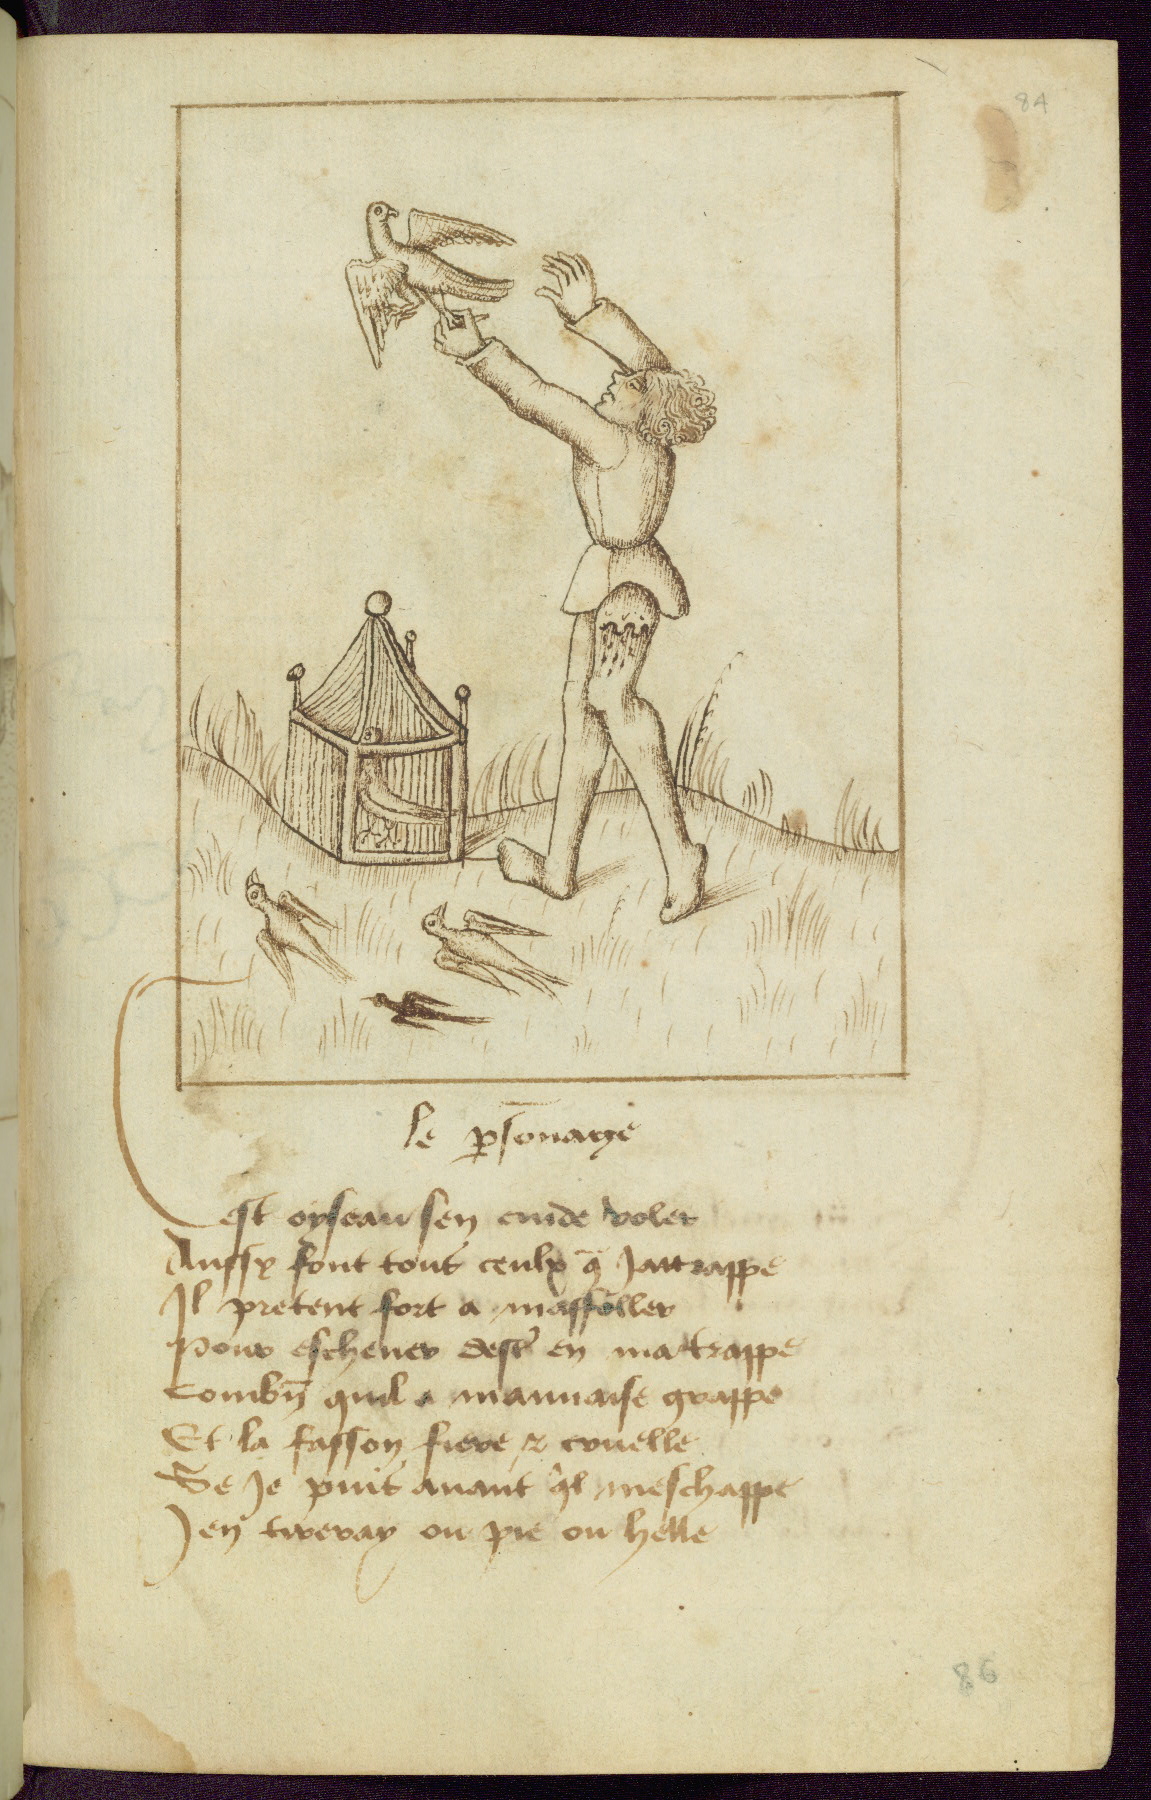 84
le p̱sonaige
Cest oyseau sen cuide voler
Aussy font tout ceulx q̃ Jattrappe
Il pretent fort a maffoller
Pour escheuer destr̃ en ma trappe
Combiñ quil a mauuaise grappe
Et la fasson fiere & cruelle
Se Je puis auant q̃l meschappe
Jen tireray ou pie ou helle
86